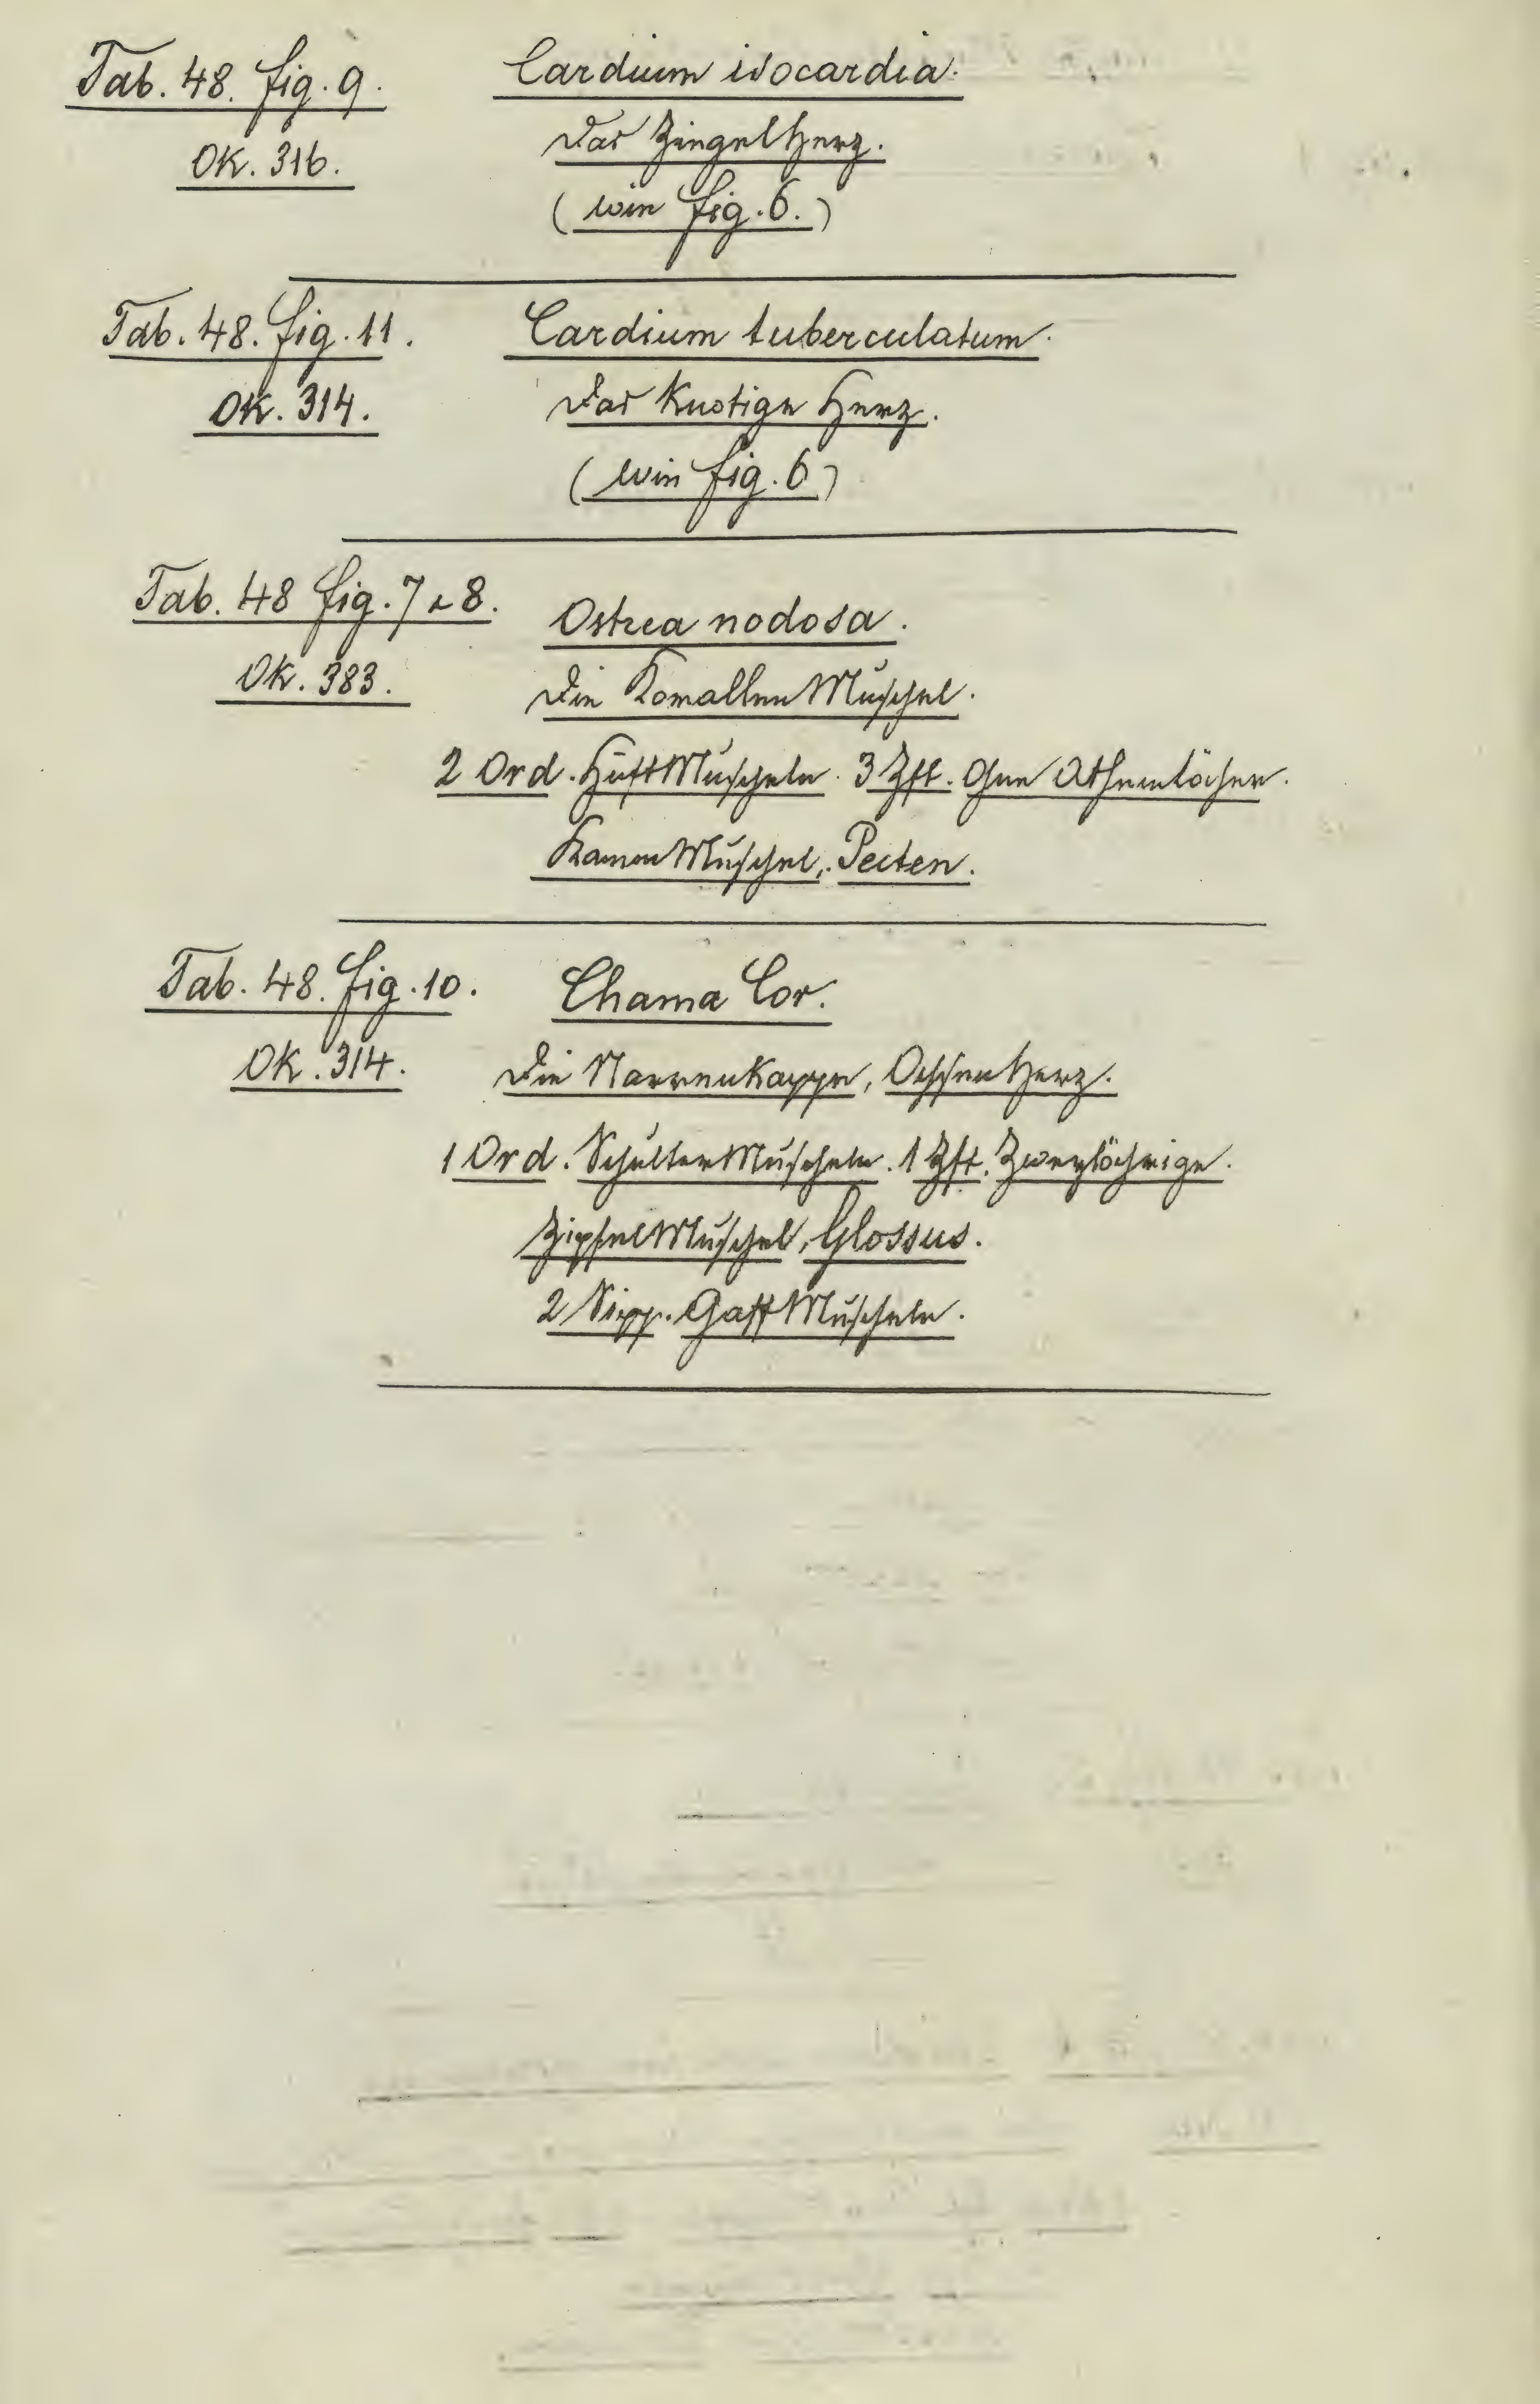 Tab. 48. fig. 9.
Cardium isocardia.
OK. 316.
Das ZiegelHerz.
(wie fig. 6.)
Tab. 48. fig. 11.
Cardium tuberculatum.
OK. 314.
Das Knotige Herz.
(wie fig. 6)
Tab. 48 fig. 7 & 8.
Ostrea nodosa.
OK. 383.
Die KorallenMuschel.
2 Ord. HüftMuscheln. 3 Zft. Ohne Athemlöcher.
KammMuschel, Pecten.
Tab. 48. fig. 10.
Chama Cor.
OK. 314.
Die NarrenKappe, OchsenHerz.
1 Ord. SchulterMuscheln. 1 Zft. Zweylöchrige.
ZipfelMuschel, Glossus.
2 Sipp. GaffMuscheln.